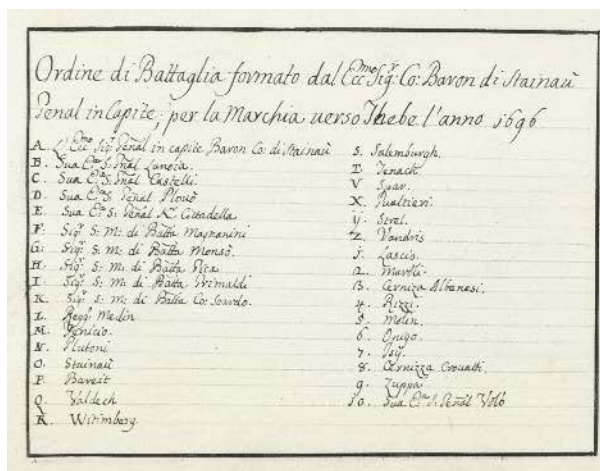 Ordine di Battaglia formato dal Ecc.mo Sig.r Co: Baron di Stainaù
Genal in Capite, per la Marchia uerso Thebe l'anno 1696
A. L'Ecc.mo Sig.r Genal in capite Baron Co: di Stainaù
B. Sua Ecc.a S: Gñal
C. Sua Ecc.a S: Gñal Castelli.
D. Sua Ecc.a S: Genal
E. Sua Ecc.a S: Genal K.r Cittadella
F. Sigr. S: M: di Batta Magnanini
G. Sigr. S: M: di Batta
H. Sigr. S: M: di Batta
I. Sigr. S: M: di Batta Grimaldi
K. Sigr. S: M: di Batta Co:
L. Regg.to Medin
M. Venicio.
N. Plutoni
O. Stainaù
P. Bareit
Q. Valdech
R. Witimberg.
S. Salemburgh.
T. Tenach
V. Spar.
X. Gualtieri.
y. Strel.
Z. Vandris
1. Lascis.
2. Maroli.
3. Cerniza Albanesi.
4. Rizzi.
5. Molin.
6. Onigo.
7.
8. Cernizza Crouatti.
9. Zuppa
10. Sua Ecc.a S: Genal Volò